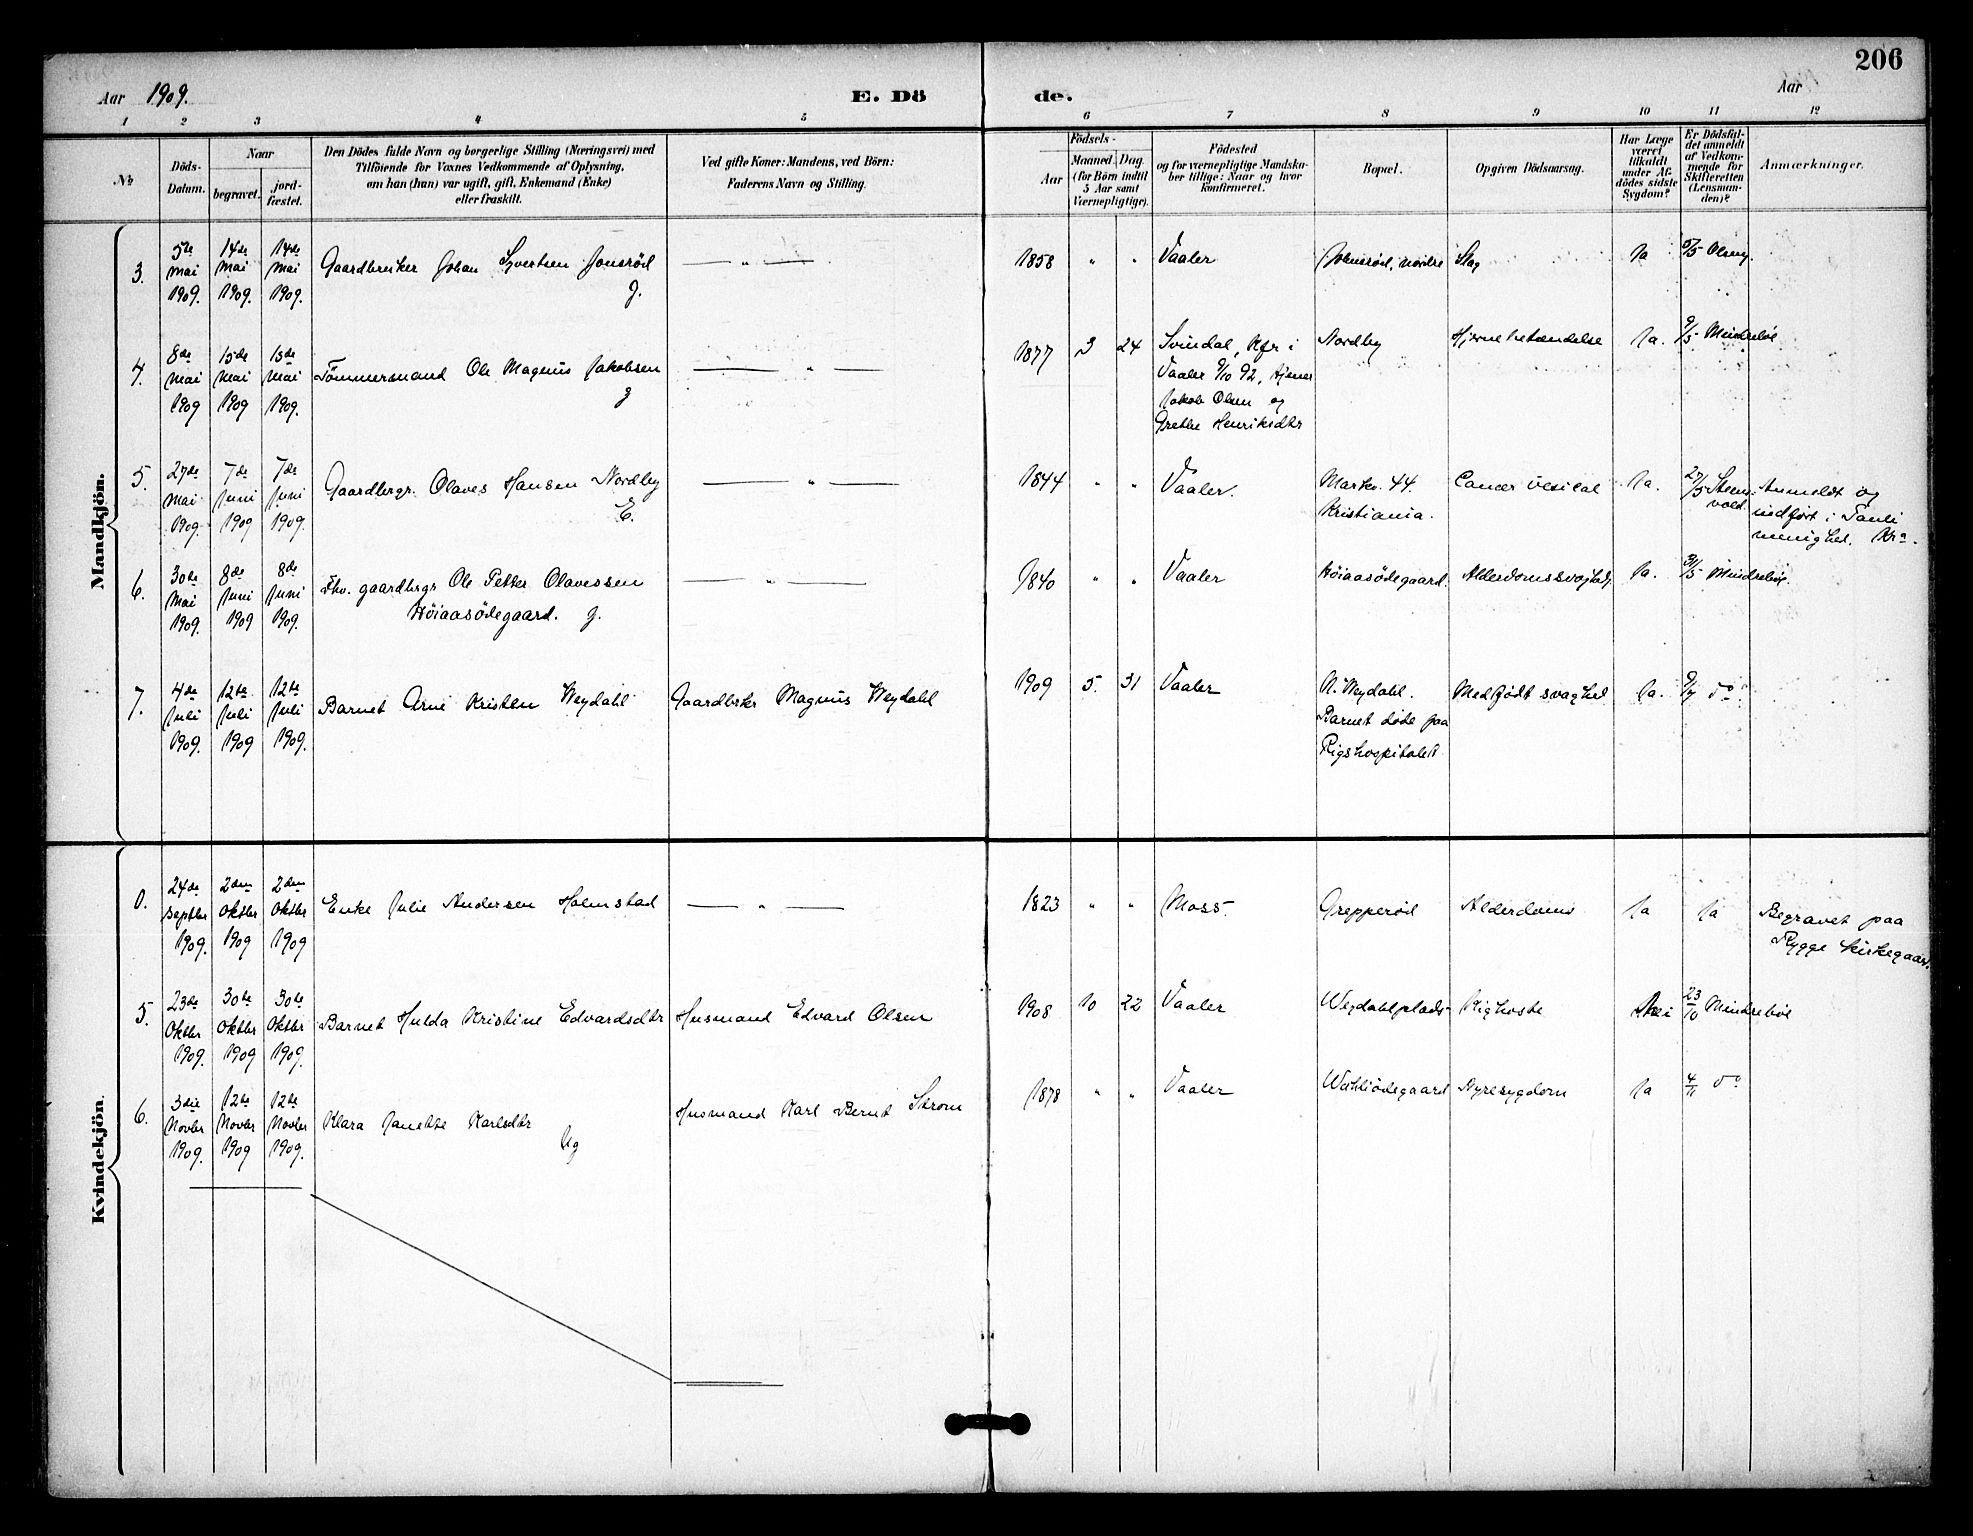 206
Aar 1909. E. Dö de. Aar
1 2 3 4 5 6 7 8 9 10 11 12
№
Döds-Datum.
Naar
begravet.
jord-fæstet.
Den Dödes fulde Navn og borgerlige Stilling (Næringsvei) med
Tilföiende for Voxnes Vedkommende af Oplysning,
om han (hun) var ugift, gift, Enkemand (Enke)
eller fraskilt.
Ved gifte Koner: Mandens, ved Börn:
Faderens Navn og Stilling.
Födsels-
Aar
Maaned. Dag.
(for Börn indtil
5 Aar samt
Værnepligtige).
Födested
og for værnepligtige Mandska-
ber tillige: Naar og hvor
konfirmeret.
Bopæl.
Opgiven Dödsaarsag.
Har Læge
været
tilkaldt
under Af-
dödes sidste
Sygdom?
Er Dödsfal-
det anmeldt
af Vedkom-
mende for
Skifteretten
(Lensman-
den)?
Anmærkninger.
Mandkjön.
3. 5de mai 1909. 14de mai 1909. 14de mai 1909. Gaardbruker Johan Syvertsen Jonsröd g. — „ — 1858 „ „ Vaaler Johnsröd, nordre Slag Ja 5/5 Olseng.
4. 8de mai 1909 15de mai 1909 15de mai 1909. Tömmermand Ole Magnus Jakobsen g — „ — 1877 3 24 Svindal, Kfr i
Vaaler 9/10 92,
Jakob Olsen og
Grethe Henriksdtr
Nordby Hjernebetændelse Ja. 9/5 Mindreböe
5. 27de mai 1909. 7de juni 1909 7de juni 1909. Gaardbrgr. Olaves Hansen Nordby E. — „ — 1844 „ „ Vaaler. Markv. 44.
Kristiania.
Cancer vesical Ja. 27/5 Steens-
vold.
Anmeldt og
indført i Pauli
menighed. Kra.
6. 30de Mai 1909. 8de Juni 1909 8de Juni 1909. Fhv. gaardbrgr Ole Petter Olavessen
Höiaasödegaard. g.
— „ — 1840 „ „ Vaaler Höiaasödegaard. Alderdomssvaghed Ja. 31/5 Mindreböe.
7. 4de Juli 1909. 12te Juli 1909 12te Juli 1909. Barnet Arne Kristen Weydahl Gaardbrker Magnus Weydahl 1909 5. 31 Vaaler N. Weydahl.
Barnet döde paa
Rigshospitalet
Medfödt svaghed Ja. 9/7 do
Kvindekjön.
24de Septbr 1909. 2den Oktbr 1909 2den Oktbr 1909 Enke Julie Andersen Holmstad — „ — 1823 „ „ Moss. Grepperöd Alderdoms Ja Ja Begravet paa
Rygge kirkegaard.
5. 23de Oktbr 1909. 30te Oktbr 1909 30te Oktbr 1909. Barnet Hulda Kristine Edvardsdtr Husmand Edvard Olsen 1908 10 22 Vaaler Weydahlplads Kighoste Nei 23/10 Mindreböe
6. 3die Novbr 1909. 12te Novbr 1909 12te Novbr 1909. Klara Janette Karlsdtr Ug Husmand Karl Bernt Ström 1878 „ „ Vaaler Nyresygdom Ja 4/11 do